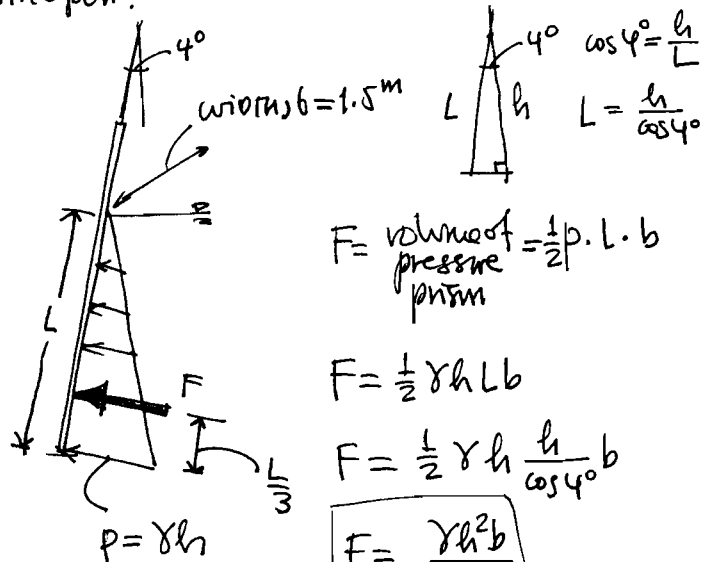 4°
width, b = 1.5 m
L
F
L/3
p = γh
4°
L
h
cos 4° = h/L
L = h/cos 4°
F = volume of pressure prism = 1/2 p · L · b
F = 1/2 γ h L b
F = 1/2 γ h h/cos 4° b
F = γh²b